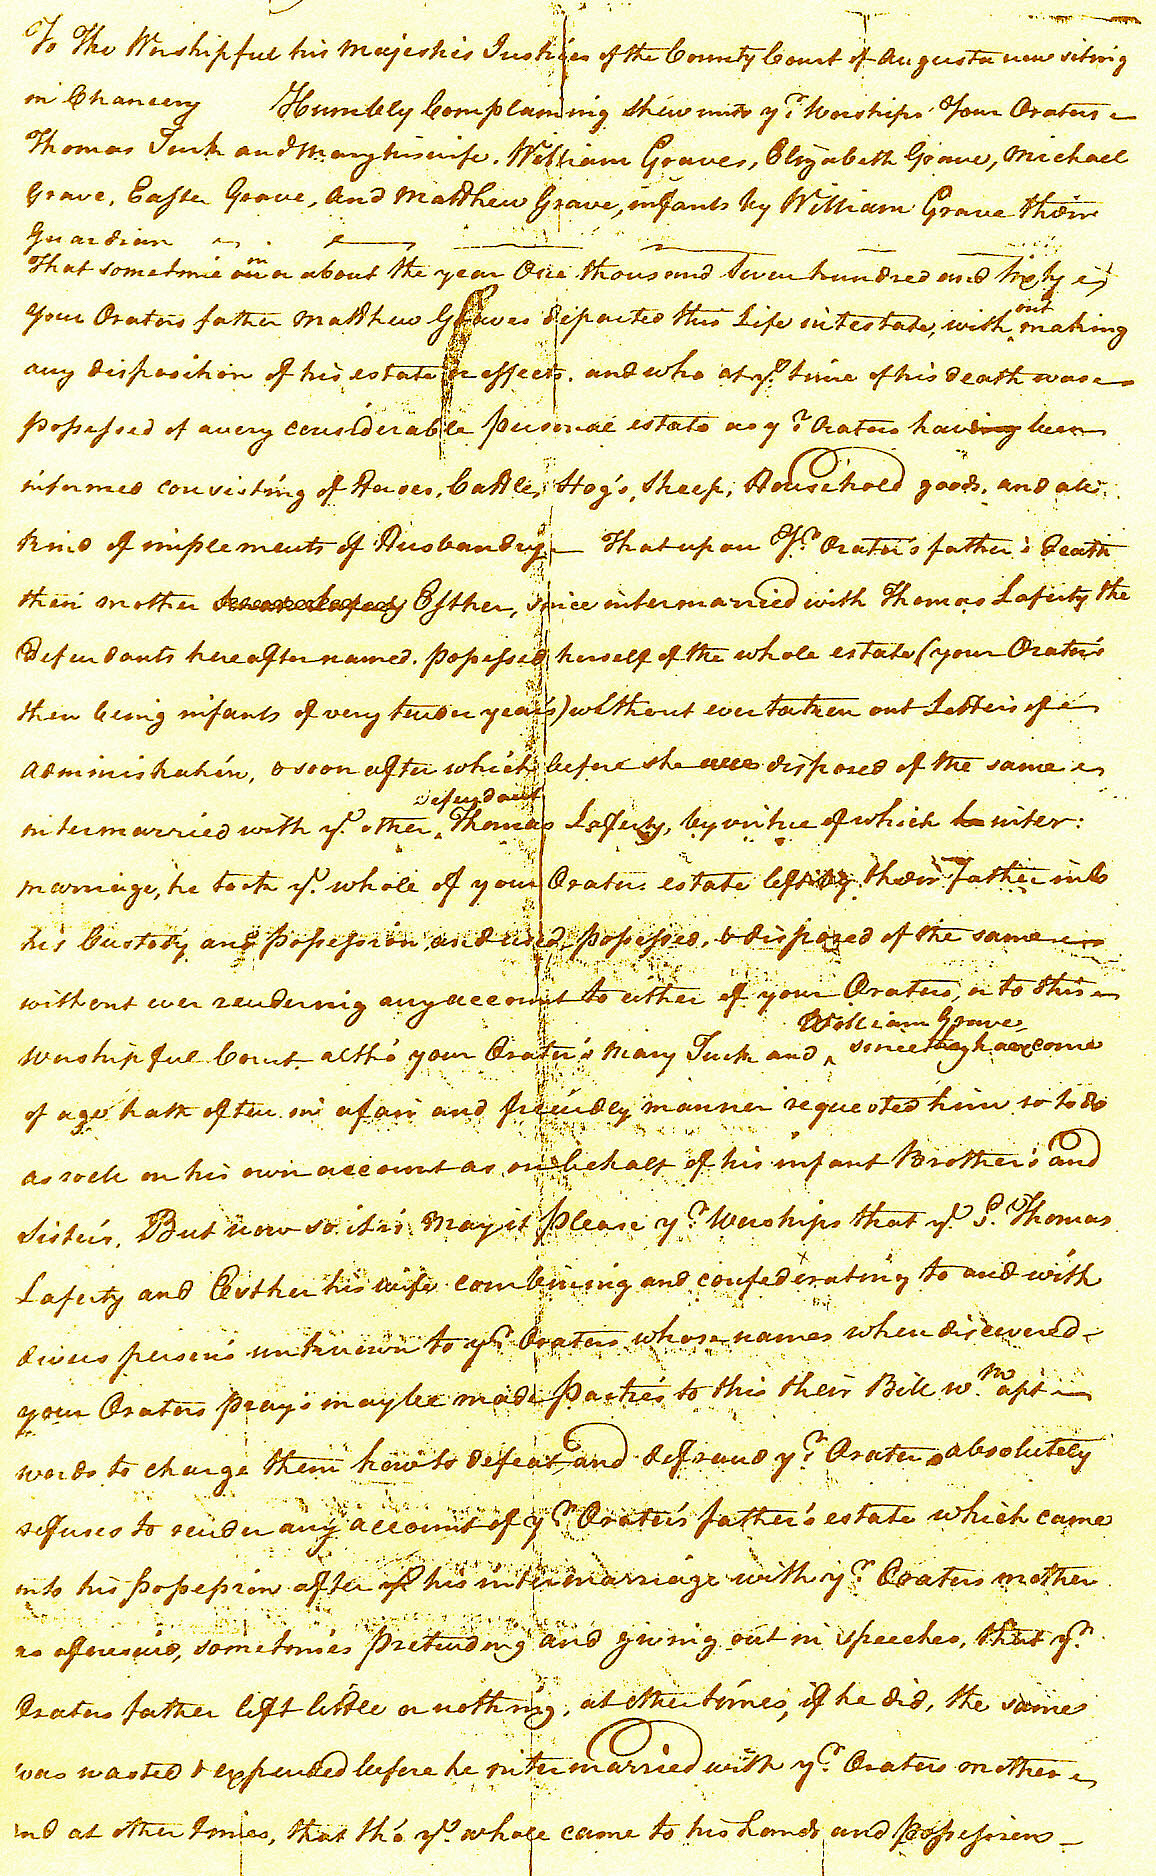 To The Worshipful his Majesties Justices of the County Court of Augusta now siting
in Chancery Humbly Complaining shew unto yr. Worships Your Orators
Thomas Tuck and Mary his wife, William Graves, Elizabeth Grave, Michael
Grave, Easter Grave, And Matthew Grave, infants by William Grave their
Guardian
That sometime in or about the year One thousand Seven hundred and sixty
Your Orators father Matthew Graves departed this Life intestate, without making
any disposition of his estate or effects. and who at ye. time of his death was
possessed of a very considerable personal estate as yr. Orators having been
informed consisting of Horses, Cattle, Hog's, Sheep, Household goods, and all
kind of implements of Husbandry That upon Yr. Orator's father's Death
their mother Esther, since intermarried with Thomas Laferty the
Defendants hereafter named. possessed herself of the whole estate (your Orator's
then being infants of very tender year's) without ever taken out Letters of
Administration, & soon after which before she disposed of the same
intermarried with ye. other defendant Thomas Laferty, by virtue of which inter:
marriage, he took ye. whole of your Orators estate left by their Father into
his Custody and possession and used, possessed, & disposed of the same
without ever rendering any account to either of your Orators, or to this
Worshipful Court. altho' your Orator's Mary Tuck and William Graves since they have come
of age hath often in a fair and friendly manner requested him so to do
as well on his own account as on behalf of his infant Brother's and
Sister's. But now so it is may it please yr. Worships that ye. Sd. Thomas
Laferty and Esther his wife combining and confederating to and with
divers person's unknown to yr. Orators whose names when discovered
your Orators pray's may be made Parties to this their Bill wth. apt
words to charge them how to defeat and defraud yr. Orators absolutely
refuses to render any account of yr. Orator's father's estate which came
into his possession after his intermarriage with yr. Orators mother
as aforesaid, sometimes pretending and giving out in speeches, that yr.
Orators father left little or nothing, at other times, if he did, the same
was wasted & expended before he intermarried with yr. Orators mother
and at other times, that tho' ye. whole came to his hands and possession